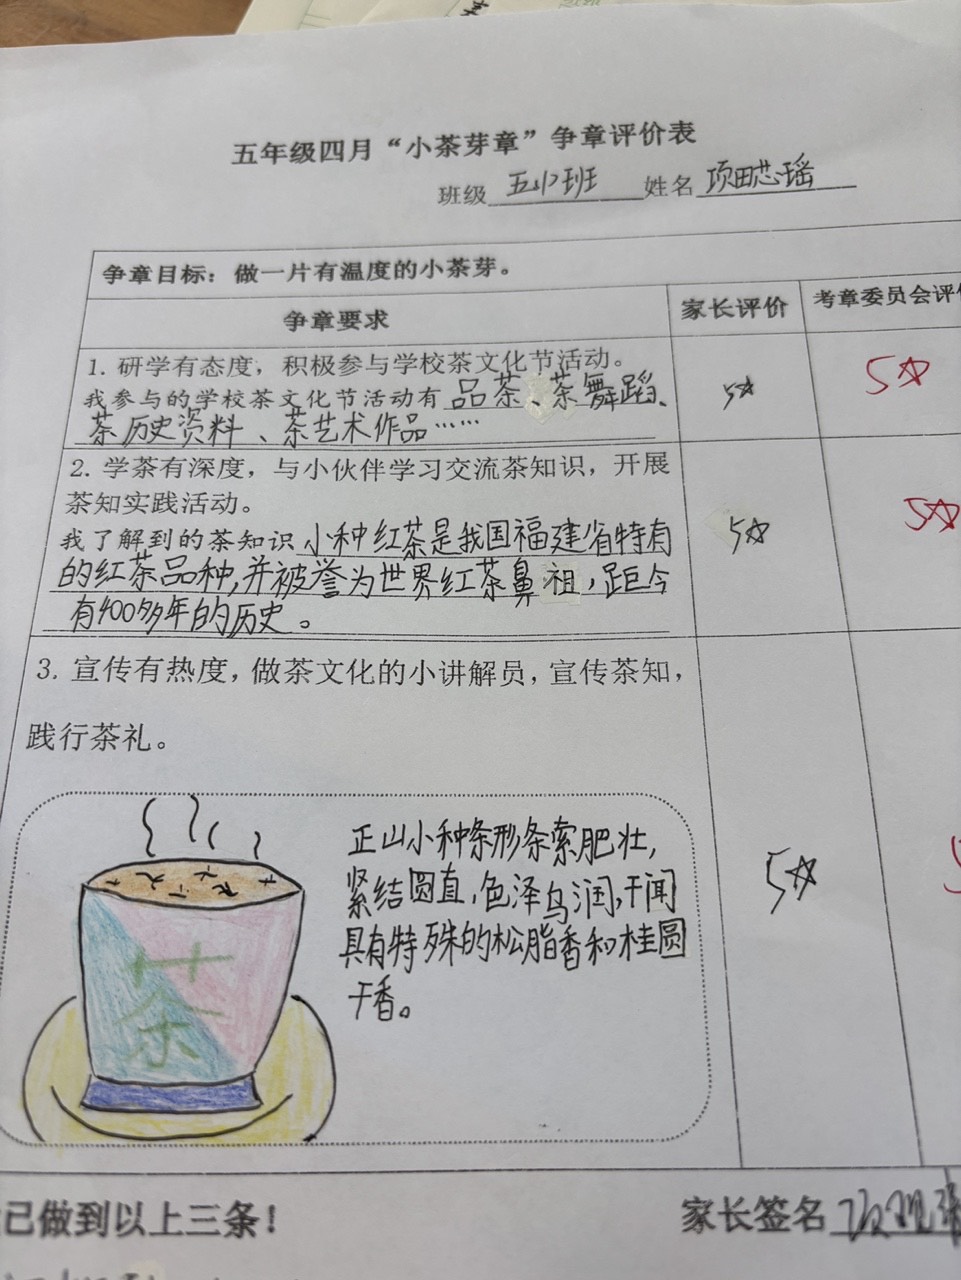 五年级四月“小茶芽章”争章评价表
班级 五小班 姓名 项田芯瑶
争章目标：做一片有温度的小茶芽。
争章要求 家长评价 考章委员会评价
1. 研学有态度，积极参与学校茶文化节活动。
我参与的学校茶文化节活动有 品茶、茶舞蹈、
茶历史资料、茶艺术作品……
5☆ 5☆
2. 学茶有深度，与小伙伴学习交流茶知识，开展
茶知实践活动。
我了解到的茶知识 小种红茶是我国福建省特有
的红茶品种,并被誉为世界红茶鼻祖，距今
有400多年的历史。
5☆ 5☆
3. 宣传有热度，做茶文化的小讲解员，宣传茶知，
践行茶礼。
正山小种条形条索肥壮,
紧结圆直,色泽乌润,干闻
具有特殊的松脂香和桂圆
干香。
5☆
茶
己做到以上三条！ 家长签名